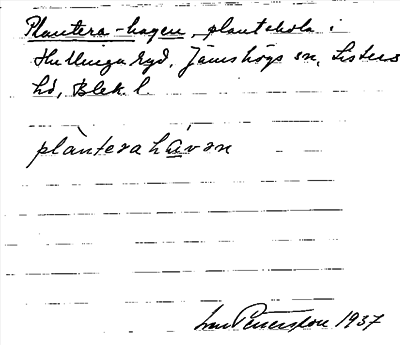 Plantera-hagen, plantskola i
Hullingaryd, Jämshögs sn, Listers
hd, Blek. l.
plàntera hávən
Petersson 1937